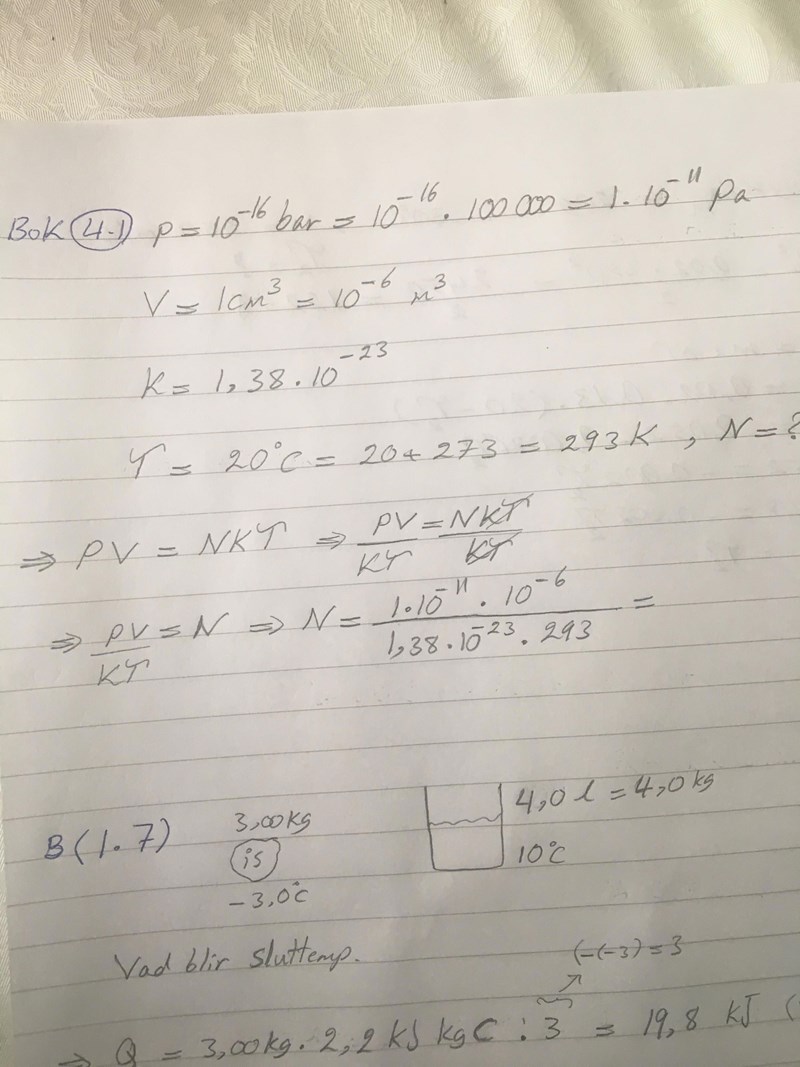 Bok 4.1) P = 10^-16 bar = 10^-16 . 100 000 = 1. 10^-11 Pa
V = 1cm^3 = 10^-6 m^3
K = 1,38.10^-23
T = 20°C = 20+273 = 293K , N=?
⇒ PV = NKT ⇒ PV/KT = NKT/KT
⇒ PV/KT = N ⇒ N = 1.10^-11 . 10^-6 / 1,38.10^-23 . 293 =
B(1.7) 3,00kg 4,0 l = 4,0 kg
is 10°C
-3,0°C
Vad blir sluttemp. (-(-3)=3
⇒ Q = 3,00kg. 2,2 kJ kgC : 3 = 19,8 kJ (